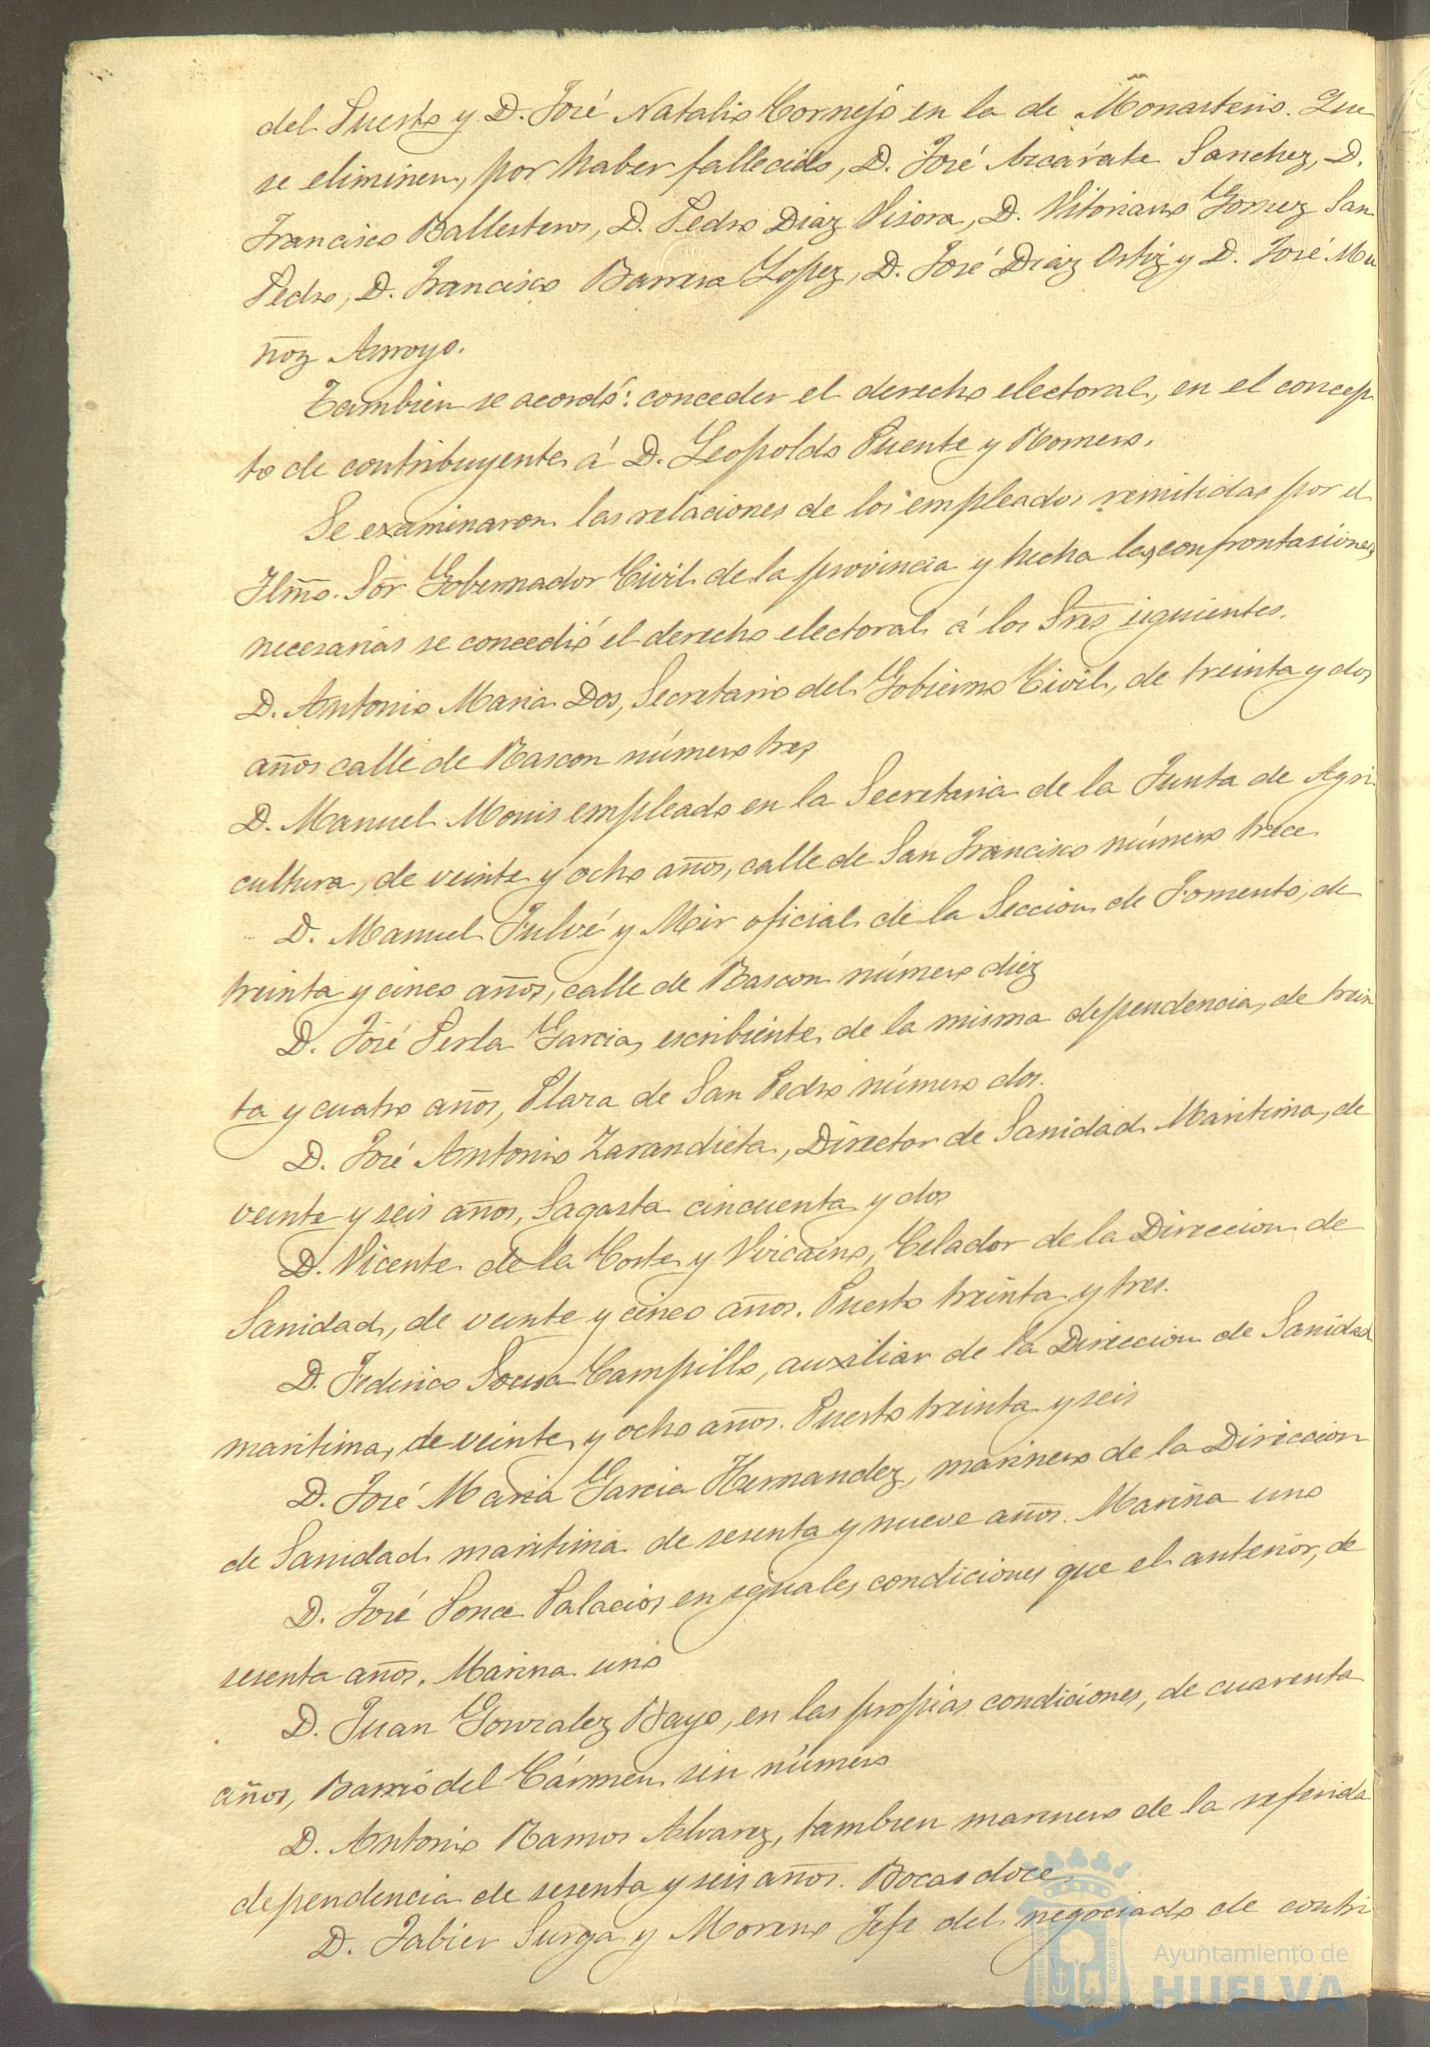 del Puerto y D. José Natalio Cornejo en la de Monasterio. Que
se eliminen, por haber fallecido, D. José Azcárate Sanchez, D.
Francisco Ballesteros, D. Pedro Diaz Visora, D. Vitoriano Gomez San
Pedro, D. Francisco Barrera Lopez, D. José Diaz Ortiz y D. José Mu
ñoz Arroyo.
Tambien se acordó: conceder el derecho electoral, en el concep
to de contribuyente á D. Leopoldo Puente y Romero.
Se examinaron las relaciones de los empleados remitidas por el
Ilmo. Sor Gobernador Civil de la provincia y hecha las confrontasiones
necesarias se concedió el derecho electoral á los Sres siguientes.
D. Antonio Maria Dos, Secretario del Gobierno Civil, de treinta y dos
años calle de Rascon número tres
D. Manuel Monis empleado en la Secretaria de la Junta de Agri
cultura, de veinte y ocho años, calle de San Francisco número trece
D. Manuel Fulvé y Mir oficial de la Seccion de Fomento, de
treinta y cinco años, calle de Rascon número diez
D. José Perla Garcia, escribiente de la misma dependencia, de trein
ta y cuatro años, Plaza de San Pedro número dos.
D. José Antonio Zarandieta, Director de Sanidad Maritima, de
veinte y seis años, Sagasta cincuenta y dos
D. Vicente de la Corte y Vizcaino, Celador de la Direccion de
Sanidad, de veinte y cinco años. Puerto treinta y tres.
D. Federico Sousa Campillo, auxiliar de la Direccion de Sanidad
maritima, de veinte y ocho años. Puerto treinta y seis
D. José Maria Garcia Hernandez, marinero de la Direccion
de Sanidad maritima de sesenta y nueve años. Marina uno
D. José Ponce Palacios en iguales condiciones que el anterior, de
sesenta años. Marina uno
D. Juan Gonzalez Bayo, en las propias condiciones, de cuarenta
años, Barrio del Cármen sin número
D. Antonio Ramos Alvarez, tambien marinero de la referida
dependencia de sesenta y seis años. Bocas doce
D. Jabier Surga y Moreno Jefe del negociado de contri
Ayuntamiento de
HUELVA